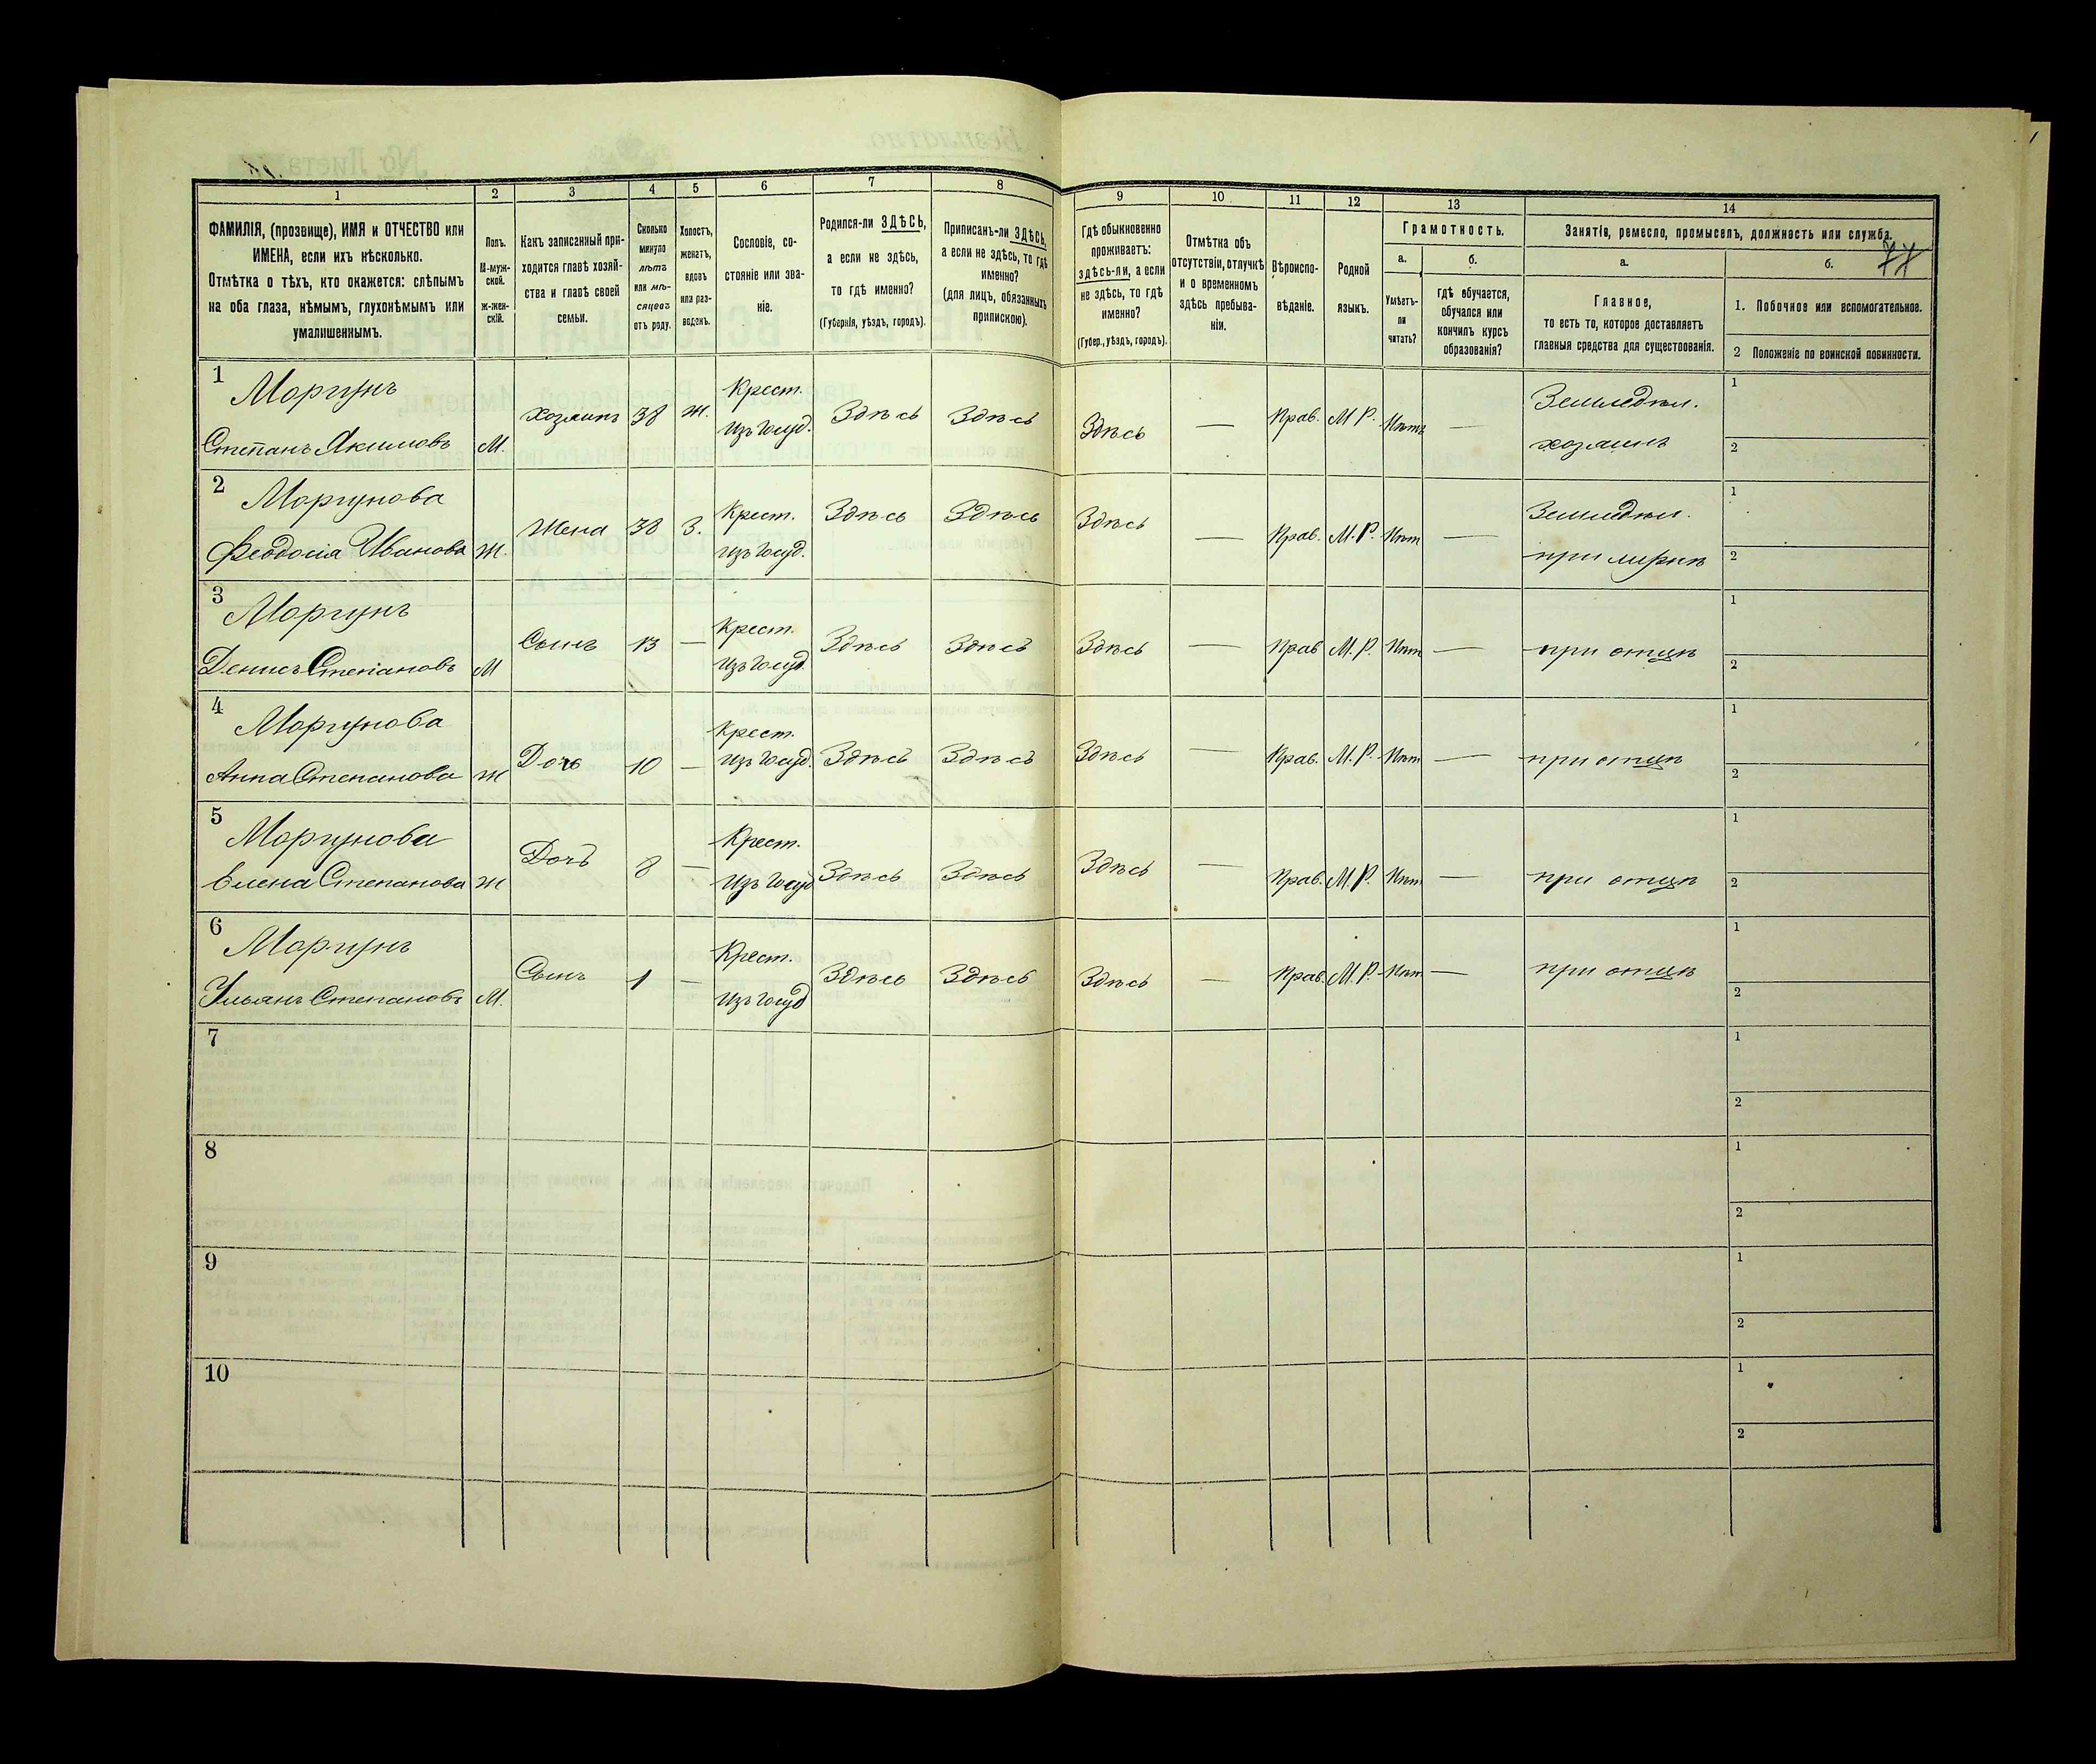 1 2 3 4 5 6 7 8 9 10 11 12 13 14
ФАМИЛІЯ, (прозвище), ИМЯ и ОТЧЕСТВО или
ИМЕНА, если ихъ нѣсколько.
Отмѣтка о тѣхъ, кто окажется: слѣпымъ
на оба глаза, нѣмымъ, глухонѣмымъ или
умалишеннымъ.
Полъ.
М-муж-
ской.
ж-жен-
скій.
Какъ записанный при-
ходится главѣ хозяй-
ства и главѣ своей
семьи.
Сколько
минуло
лѣтъ
или мѣ-
сяцевъ
отъ роду.
Холостъ,
женатъ,
вдовъ
или раз-
веденъ.
Сословіе, со-
стояніе или зва-
ніе.
Родился-ли ЗДѢСЬ,
а если не здѣсь,
то гдѣ именно?
(Губернія, уѣздъ, городъ).
Приписанъ-ли ЗДѢСЬ,
а если не здѣсь, то гдѣ
именно?
(для лицъ, обязанныхъ
припискою).
Гдѣ обыкновенно
проживаетъ:
здѣсь-ли, а если
не здѣсь, то гдѣ
именно?
(Губер., уѣздъ, городъ).
Отмѣтка объ
отсутствіи, отлучкѣ
и о временномъ
здѣсь пребыва-
ніи.
Вѣроиспо-
вѣданіе.
Родной
языкъ.
Грамотность.
а.
Умѣетъ-
ли
читать?
б.
гдѣ обучается,
обучался или
кончилъ курсъ
образованія?
Занятіе, ремесло, промыселъ, должность или служба.
77
а.
Главное,
то есть то, которое доставляетъ
главныя средства для существованія.
б.
1. Побочное или вспомогательное.
2 Положеніе по воинской повинности.
1 Моргунъ Крест. Земледѣл. 1
Степанъ Якимовъ М. хозяинъ 38 ж. изъ госуд. Здѣсь Здѣсь Здѣсь — Прав. М Р. Нѣтъ — хозяинъ 2
2 Моргунова Крест. Земледѣл. 1
Феодосія Иванова Ж. Жена 38 З. изъ госуд. Здѣсь Здѣсь Здѣсь — Прав. М.Р. Нѣт — при мужѣ 2
3 Моргунъ Крест. 1
Денисъ Степановъ М Сынъ 13 — изъ госуд. Здѣсь Здѣсь Здѣсь — Прав М.Р. Нѣт — при отцѣ 2
4 Моргунова Крест. 1
Анна Степанова Ж Дочь 10 — изъ госуд. Здѣсь Здѣсь Здѣсь — Прав. М.Р. Нѣт — при отцѣ 2
5 Моргунова Крест. 1
Елена Степанова Ж Дочь 8 — изъ госуд Здѣсь Здѣсь Здѣсь — Прав. М.Р. Нѣт — при отцѣ 2
6 Моргунъ Крест. 1
Ульянъ Степановъ М. Сынъ 1 — изъ госуд Здѣсь Здѣсь Здѣсь — Прав. М.Р. Нѣт — при отцѣ 2
7 1
2
8 1
2
9 1
2
10 1
2